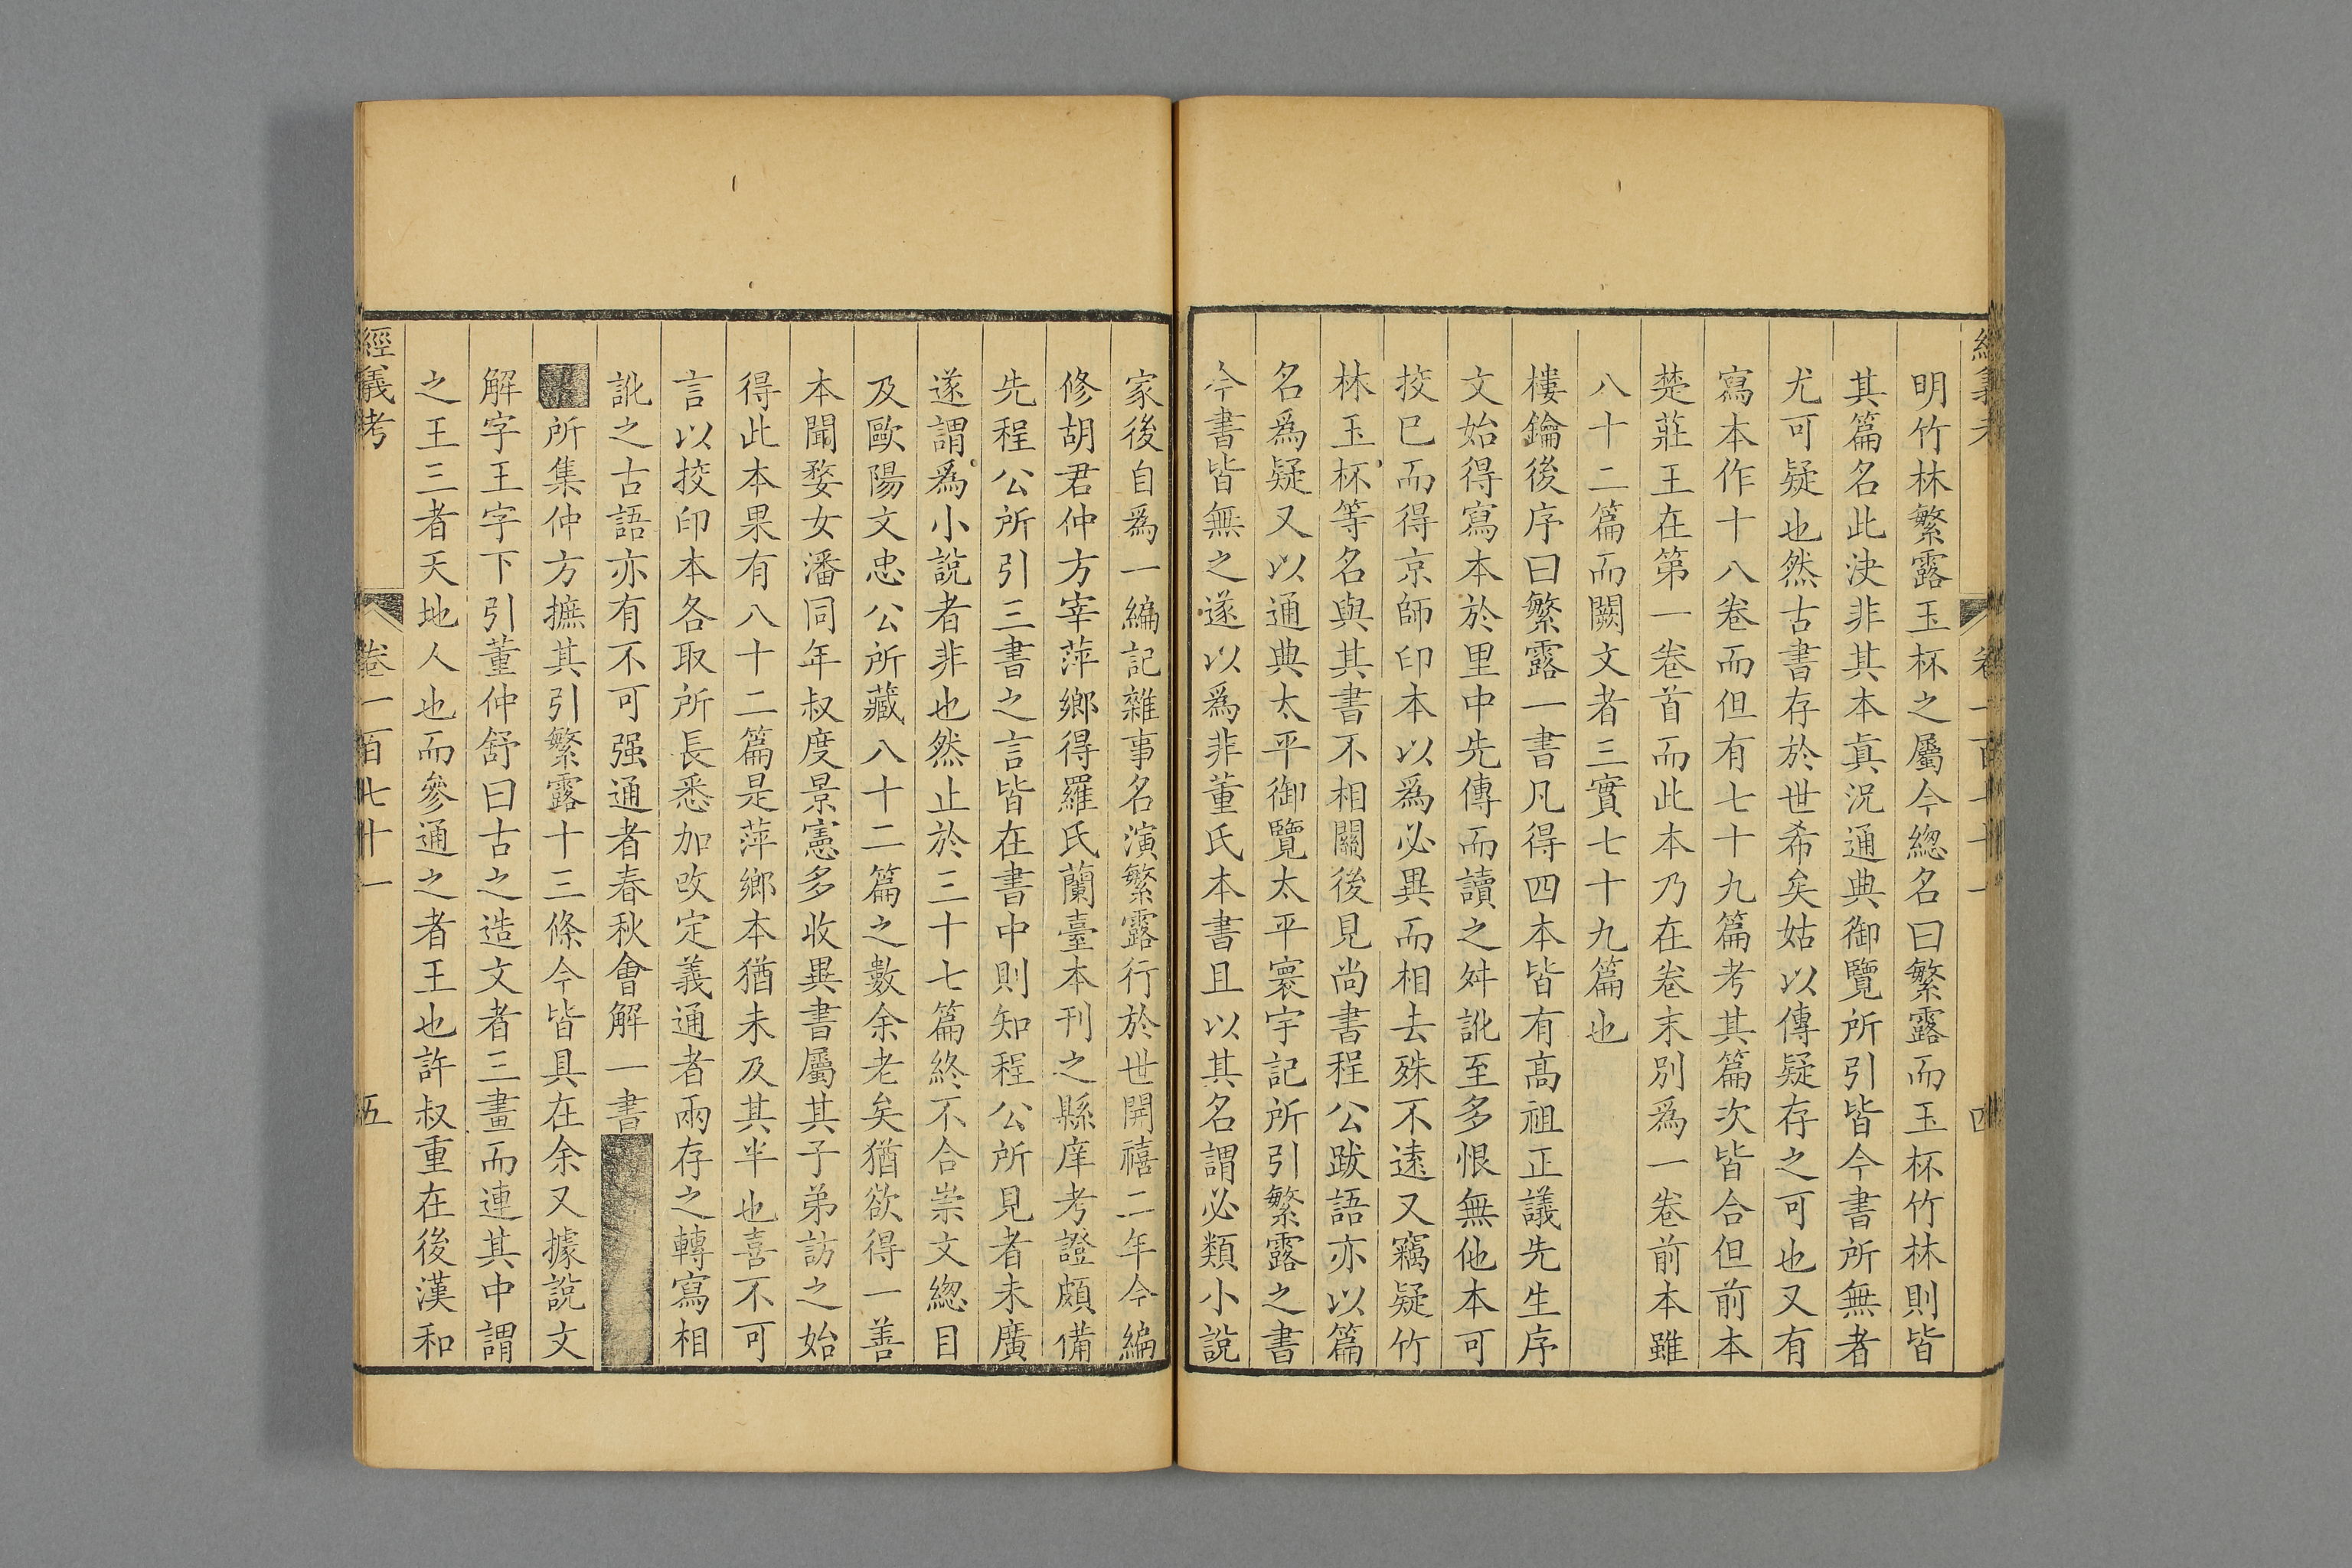 明竹林繁露玉杯之屬今緫名曰繁露而玉杯竹林則皆
其篇名此決非其本真況通典御覽所引皆今書所無者
尤可疑也然古書存於世希矣姑以傳疑存之可也又有
寫本作十八卷而但有七十九篇考其篇次皆合但前本
楚莊王在第一卷首而此本乃在卷末別爲一卷前本雖
八十二篇而闕文者三實七十九篇也
樓鑰後序曰繁露一書凡得四本皆有高祖正議先生序
文始得寫本於里中先傳而讀之舛訛至多恨無他本可
挍已而得京師印本以爲必異而相去殊不逺又竊疑竹
林玉杯等名與其書不相關後見尚書程公跋語亦以篇
名爲疑又以通典太平御覽太平寰宇記所引繁露之書
今書皆無之遂以爲非董氏本書且以其名謂必類小說
家後自爲一編記雜事名演繁露行於世開禧二年今編
修胡君仲方宰萍鄉得羅氏蘭臺本刊之縣庠考證頗備
先程公所引三書之言皆在書中則知程公所見者未廣
遂謂爲小說者非也然止於三十七篇終不合崇文緫目
及歐陽文忠公所藏八十二篇之數余老矣猶欲得一善
本聞婺女潘同年叔度景憲多收異書屬其子弟訪之始
得此本果有八十二篇是萍鄉本猶未及其半也喜不可
言以挍印本各取所長悉加改定義通者兩存之轉寫相
訛之古語亦有不可强通者春秋會解一書
所集仲方摭其引繁露十三條今皆具在余又據說文
解字王字下引董仲舒曰古之造文者三畫而連其中謂
之王三者天地人也而參通之者王也許叔重在後漢和
經義考
卷一百七十一
五